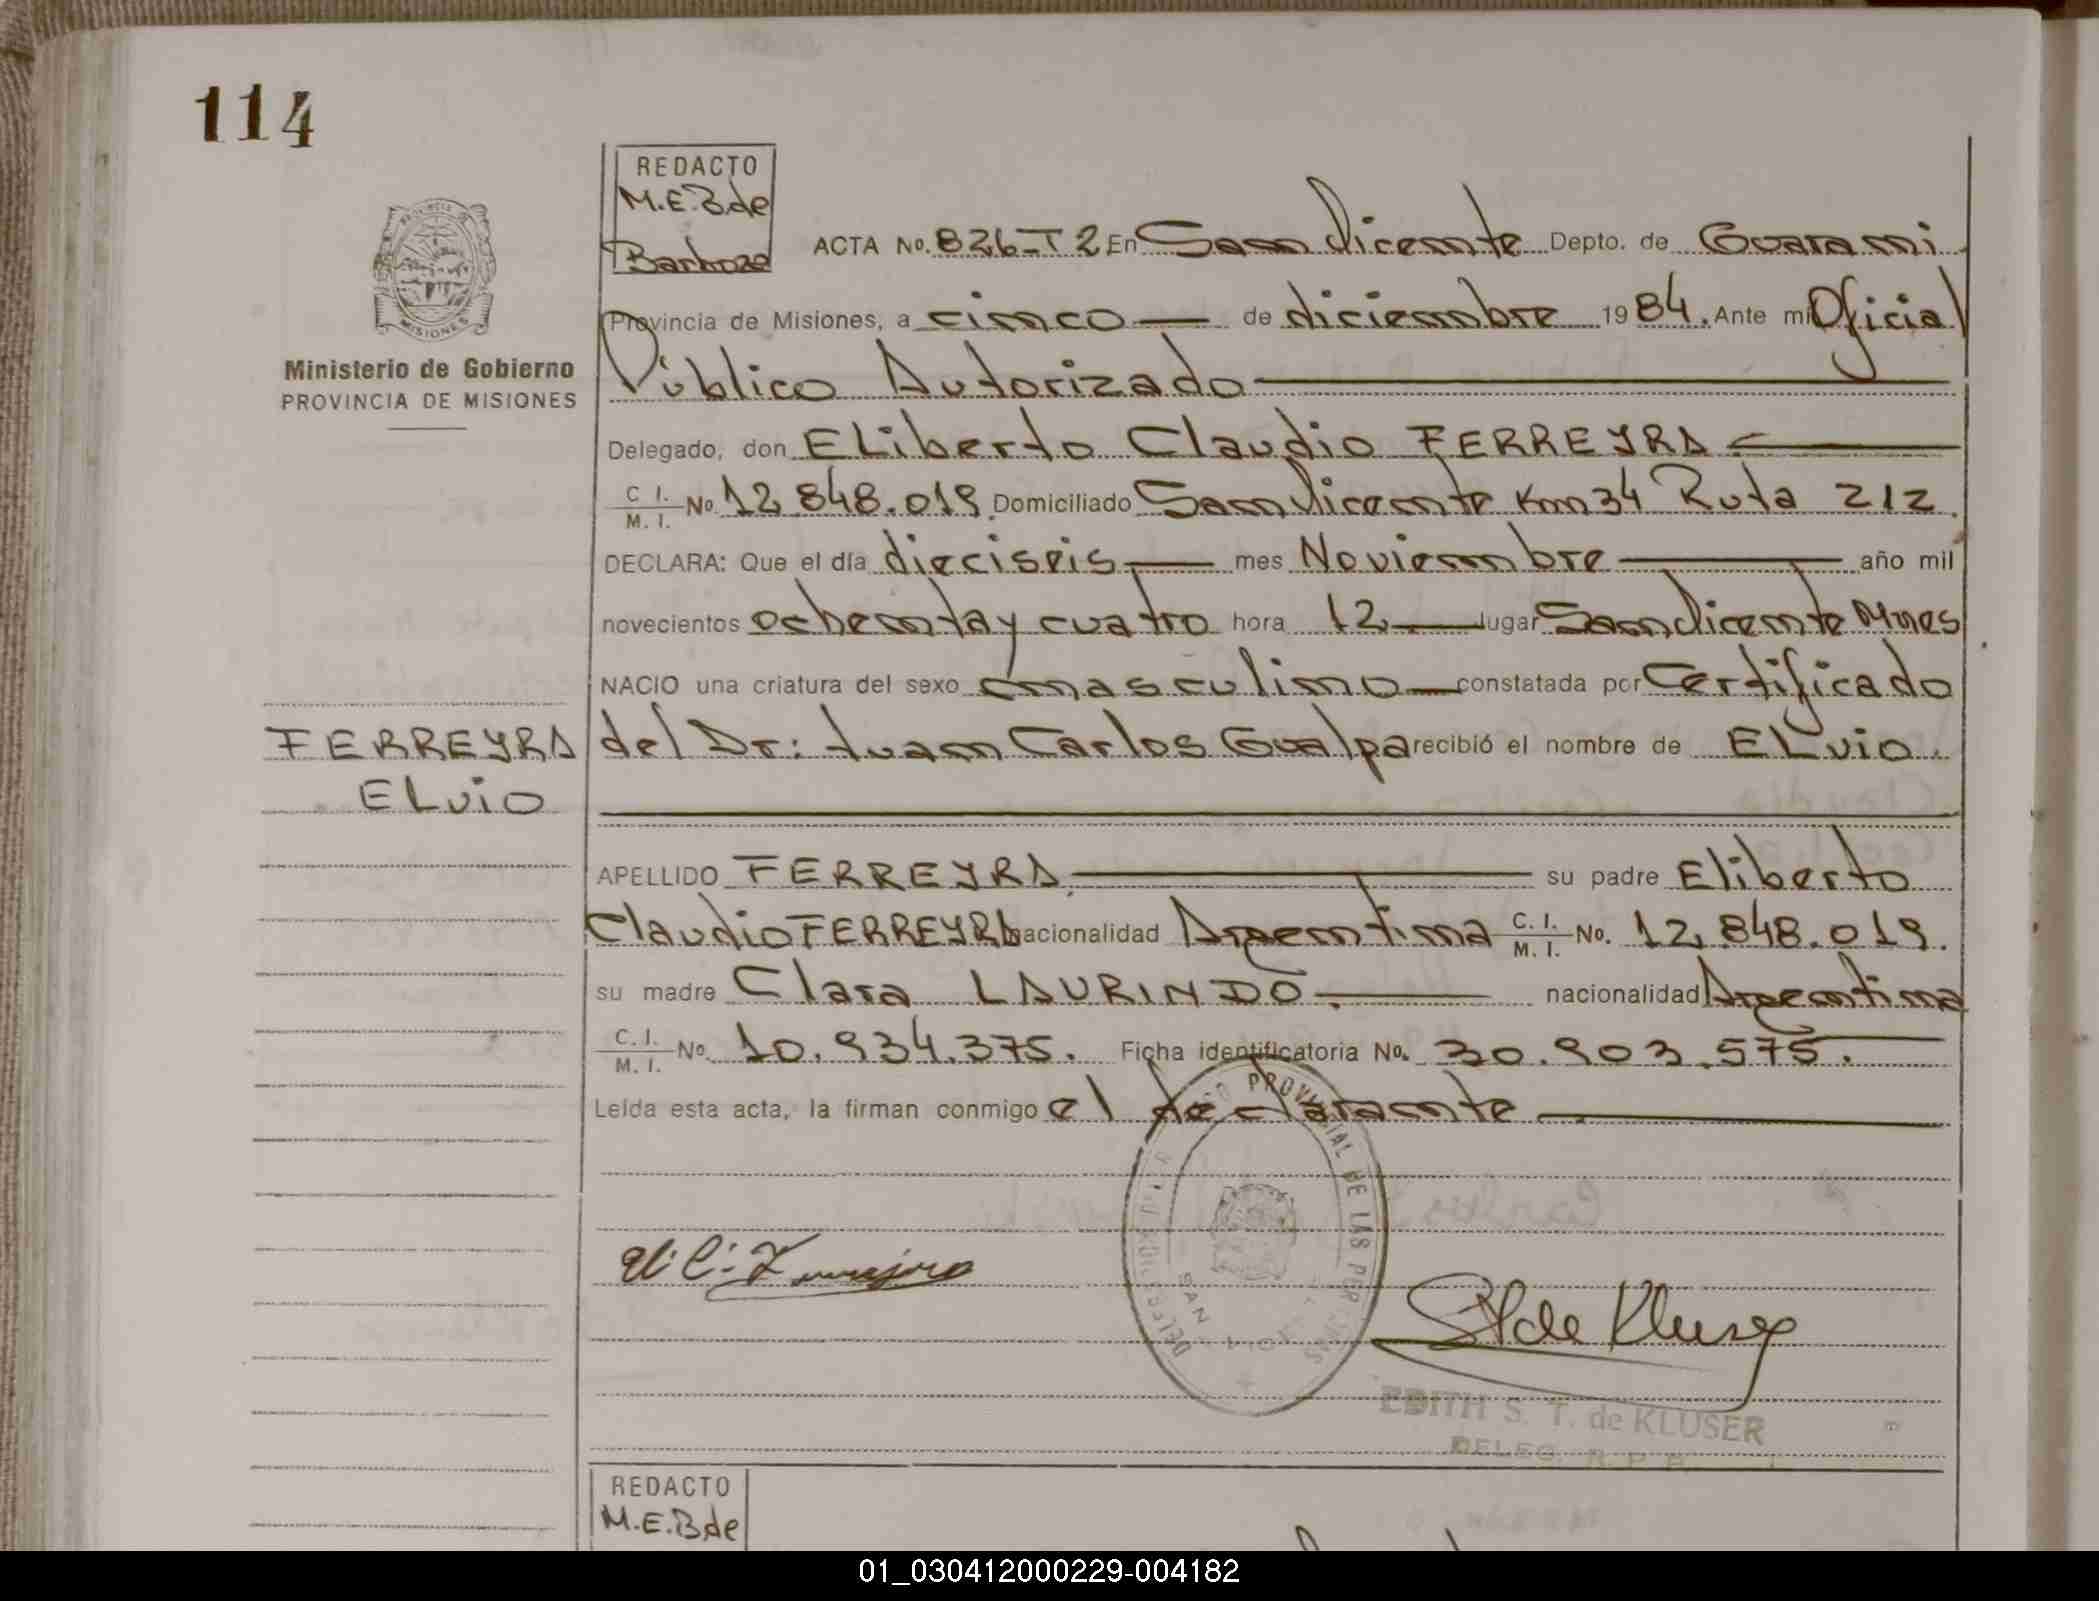 114
REDACTO
M.E.B.de
Barboza
ACTA No. 826-T2 En San Vicente Depto. de Guarani
Provincia de Misiones, a cinco de diciembre 1984. Ante mi Oficial
Público Autorizado
Ministerio de Gobierno
PROVINCIA DE MISIONES
MISIONES
Delegado, don ELiberto Claudio FERREYRA
C. I. M. I. No. 12.848.019. Domiciliado San Vicente Km 34 Ruta 212.
DECLARA: Que el día dieciseis mes Noviembre año mil
novecientos ochenta y cuatro hora 12 lugar San Vicente Mnes
NACIO una criatura del sexo masculino constatada por Certificado
FERREYRA
ELvio
del Dr: Juan Carlos Gualpa recibió el nombre de ELvio.
APELLIDO FERREYRA su padre Eliberto
Claudio FERREYRA nacionalidad Argentina C. I. M. I. No. 12.848.019.
su madre Clara LAURINDO. nacionalidad Argentina
C. I. M. I. No. 10.934.375. Ficha identificatoria No. 30.903.575.
Leída esta acta, la firman conmigo el declarante
PROVINCIAL DE LAS PERSONAS
SAN VICENTE
EDITH S. T. de KLUSER
DELEG. R. P. P.
REDACTO
M.E.B de
01_030412000229-004182